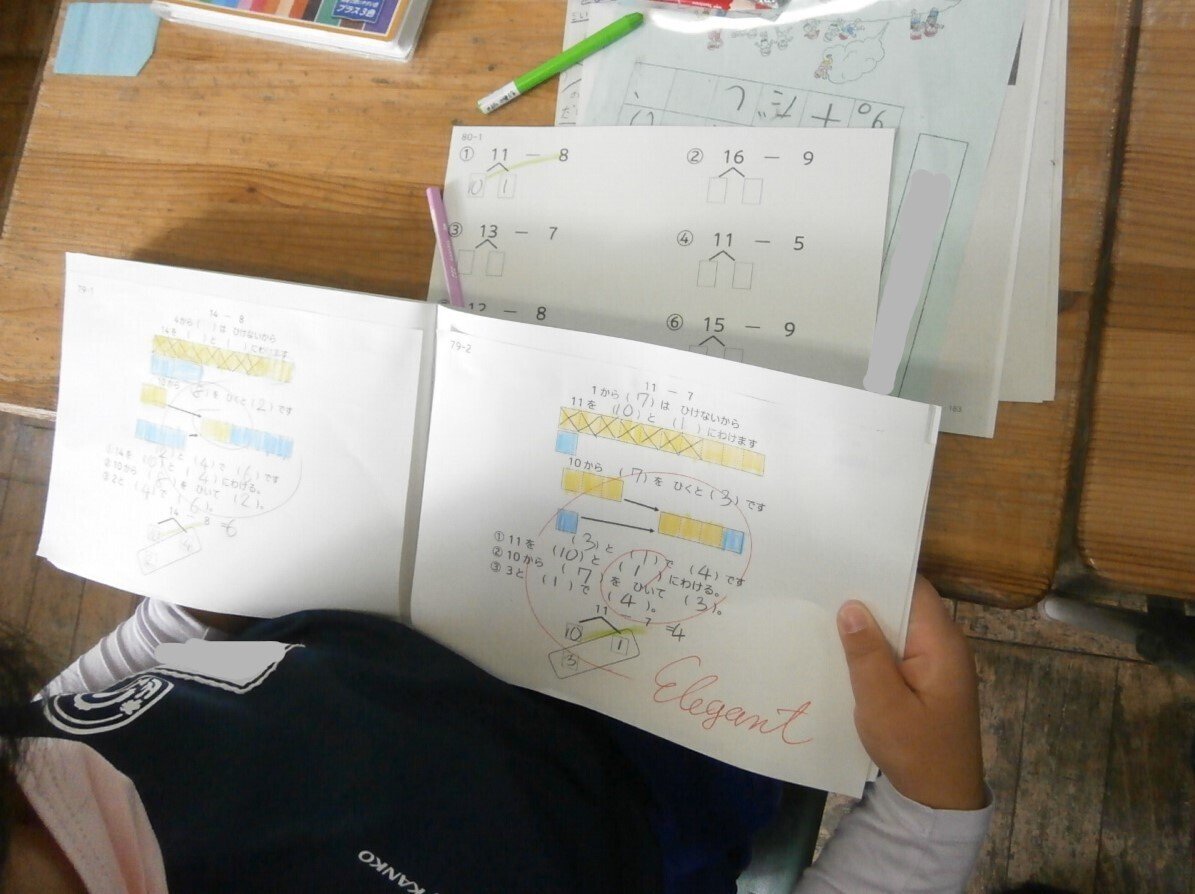 プラス3色
80-1
① 11 − 8
10 1
② 16 − 9
③ 13 − 7
④ 11 − 5
12 − 8
⑥ 15 − 9
183
79-1
14 − 8
4から( )は ひけないから
14を ( )と ( )にわけます
10から (8)を ひくと(2)です
(2)と (4)で (6)です
①14を (10)と (4)にわける。
②10から (8)を ひいて (2)。
③2と (4)で (6)。
14 − 8 =6
79-2
11 − 7
1から(7)は ひけないから
11を (10)と (1)にわけます
10から (7)を ひくと(3)です
(3)と (1)で (4)です
①11を (10)と (1)にわける。
②10から (7)を ひいて (3)。
③3と (1)で (4)。
11 − 7 =4
10 1
3
Elegant
KANKO